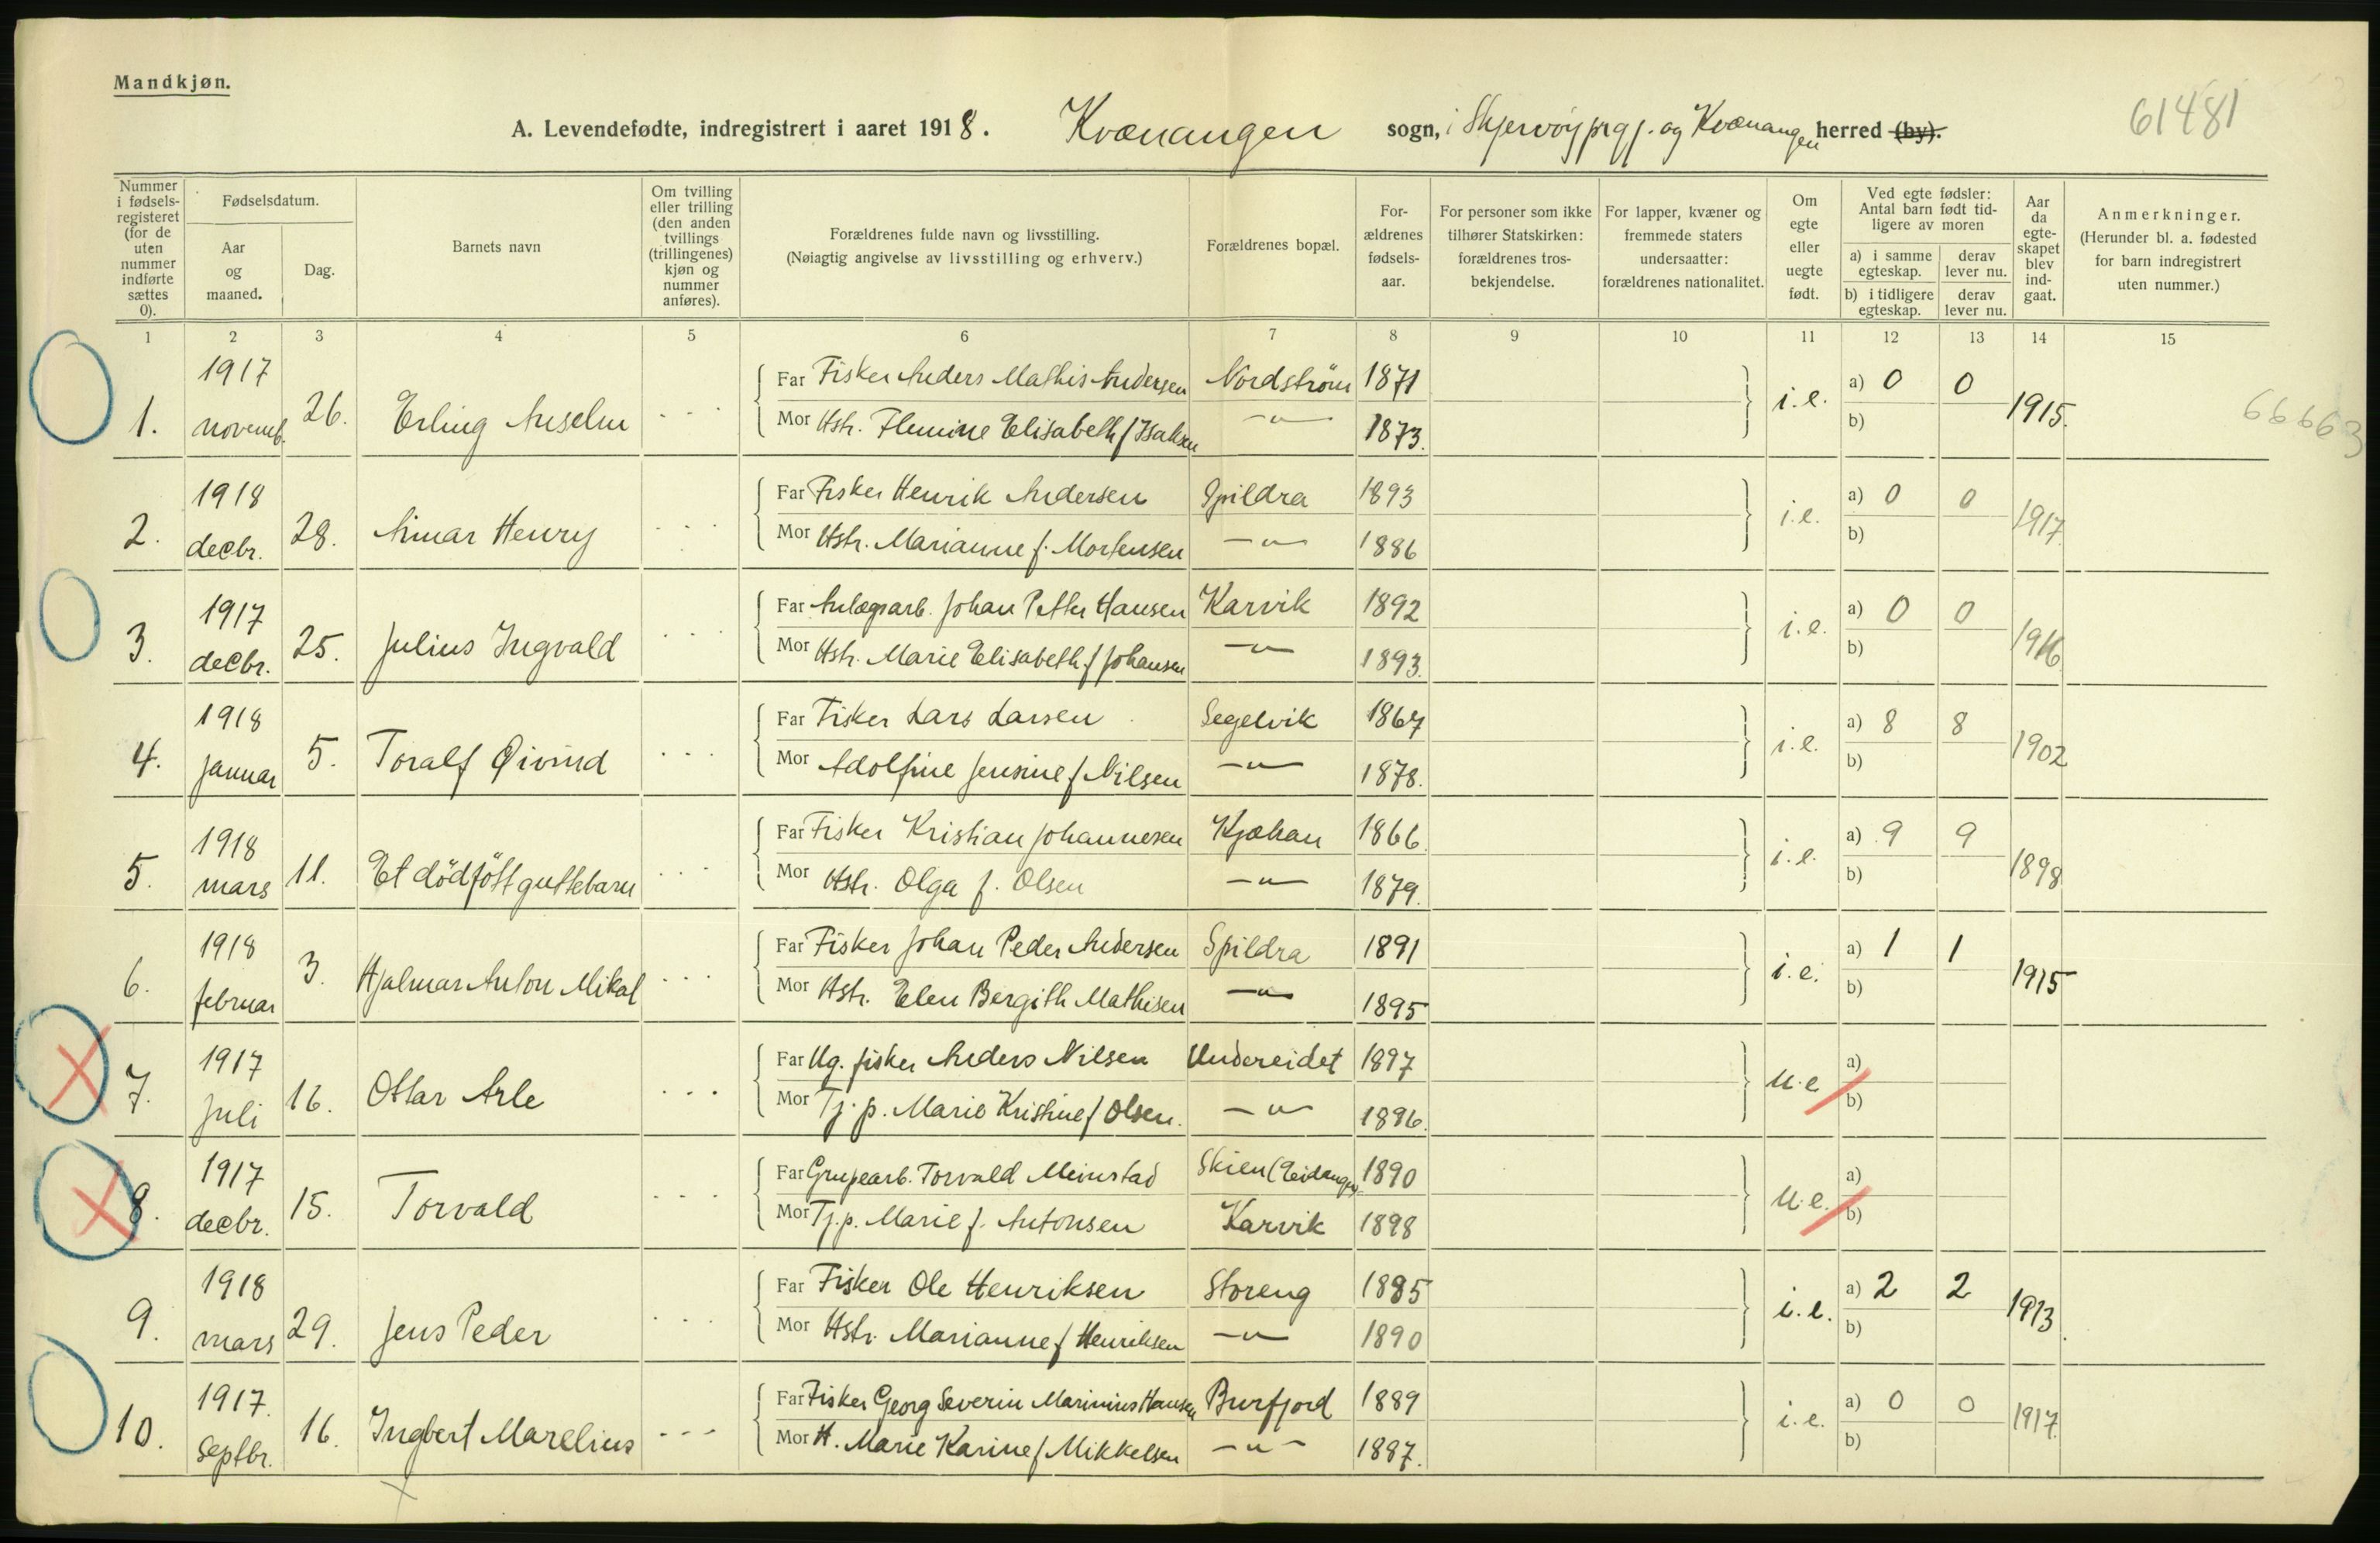 Mandkjøn.
61481
A. Levendefødte, indregistrert i aaret 1918. Kvænangen sogn, i Skjervøy prgj. og Kvænangen herred (by).
Nummer i fødselsregisteret (for de uten nummer indførte sættes 0).
Fødselsdatum.
Aar og maaned.
Dag.
Barnets navn
Om tvilling eller trilling (den anden tvillings (trillingenes) kjøn og nummer anføres).
Forældrenes fulde navn og livsstilling.
(Nøiagtig angivelse av livsstilling og erhverv.)
Forældrenes bopæl.
Forældrenes fødselsaar.
For personer som ikke tilhører Statskirken: forældrenes trosbekjendelse.
For lapper, kvæner og fremmede staters undersaatter: forældrenes nationalitet.
Om egte eller uegte født.
Ved egte fødsler: Antal barn født tidligere av moren
a) i samme egteskap. derav lever nu.
b) i tidligere egteskap. derav lever nu.
Aar da egteskapet blev indgaat.
Anmerkninger.
(Herunder bl. a. fødested for barn indregistrert uten nummer.)
1 2 3 4 5 6 7 8 9 10 11 12 13 14 15
1917 Far Fisker Anders Mathis Andersen Nordstrøm 1871 a) 0 0
1. novemb. 26. Erling Anselm - - - i.e. 1915. 66663
Mor Hstr. Flemine Elisabeth f Isaksen -"- 1873. b)
1918 Far Fisker Henrik Andersen Spildra 1893 a) 0 0
2. decbr. 28. Aimar Henry - - - i.e. 1917.
Mor Hstr. Marianne f. Mortensen -"- 1886 b)
1917 Far Anlægsarb. Johan Petter Hansen Karvik 1892 a) 0 0
3. decbr. 25. Julius Ingvald - - - i.e. 1916
Mor Hstr. Marie Elisabeth f Johansen -"- 1893. b)
1918 Far Fisker Lars Larsen Segelvik 1867 a) 8 8
4. januar 5. Toralf Øivind - - - i.e. 1902
Mor Adolfine Jensine f Nilsen -"- 1878. b)
1918 Far Fisker Kristian Johannesen Kjækan 1866. a) 9 9
5. mars 11. Et dödfött guttebarn - - - i.e. 1898
Mor Hstr. Olga f. Olsen -"- 1879. b)
1918 Far Fisker Johan Peder Andersen Spildra 1891 a) 1 1
6. februar 3. Hjalmar Anton Mikal - - - i.e. 1915
Mor Hstr. Elen Bergith Mathisen -"- 1895 b)
1917 Far Ug. fisker Anders Nilsen Undereidet 1897 a)
7. juli 16. Ottar Arle - - - u.e
Mor Tj.p. Marie Kristine f Olsen. -"- 1896. b)
1917 Far Grupearb. Torvald Meinstad Skien (Eidanger) 1890 a)
8. decbr. 15. Torvald - - - u.e.
Mor Tj.p. Marie f. Antonsen Karvik 1898 b)
1918 Far Fisker Ole Henriksen Storeng 1885 a) 2 2
9. mars 29. Jens Peder - - - i.e. 1913.
Mor Hstr. Marianne f Henriksen -"- 1890 b)
1917. Far Fisker Georg Severin Marinius Hansen Burfjord 1889 a) 0 0
10. Septbr. 16. Ingbert Marelius - - - i.e. 1917.
Mor H. Marie Karine f Mikkelsen -"- 1887. b)